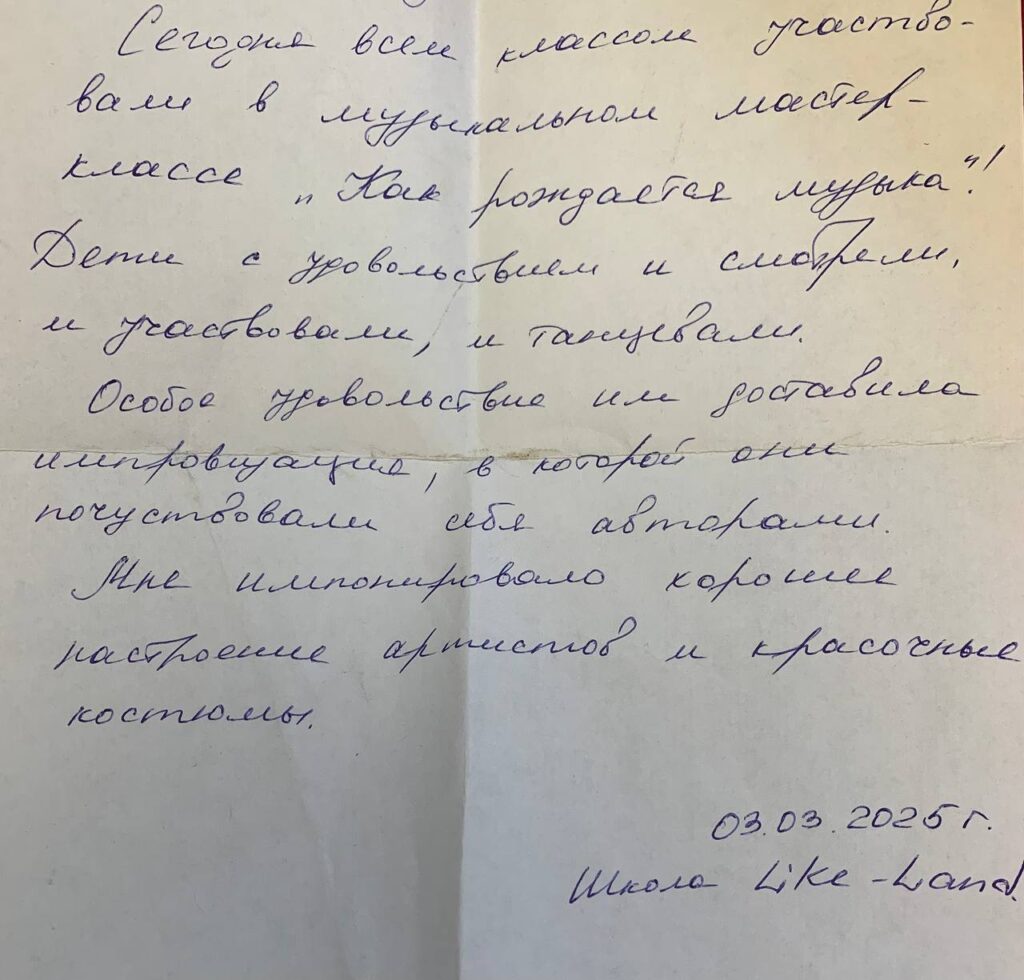 Сегодня всем классом участво-
вали в музыкальном мастер-
классе „Как рождается музыка“!
Дети с удовольствием и смотрели,
и участвовали, и танцевали.
Особое удовольствие им доставила
импровизация, в которой они
почуствовали себя авторами.
Мне импонировало хорошее
настроение артистов и красочные
костюмы.
03.03.2025 г.
Школа Like-Land.